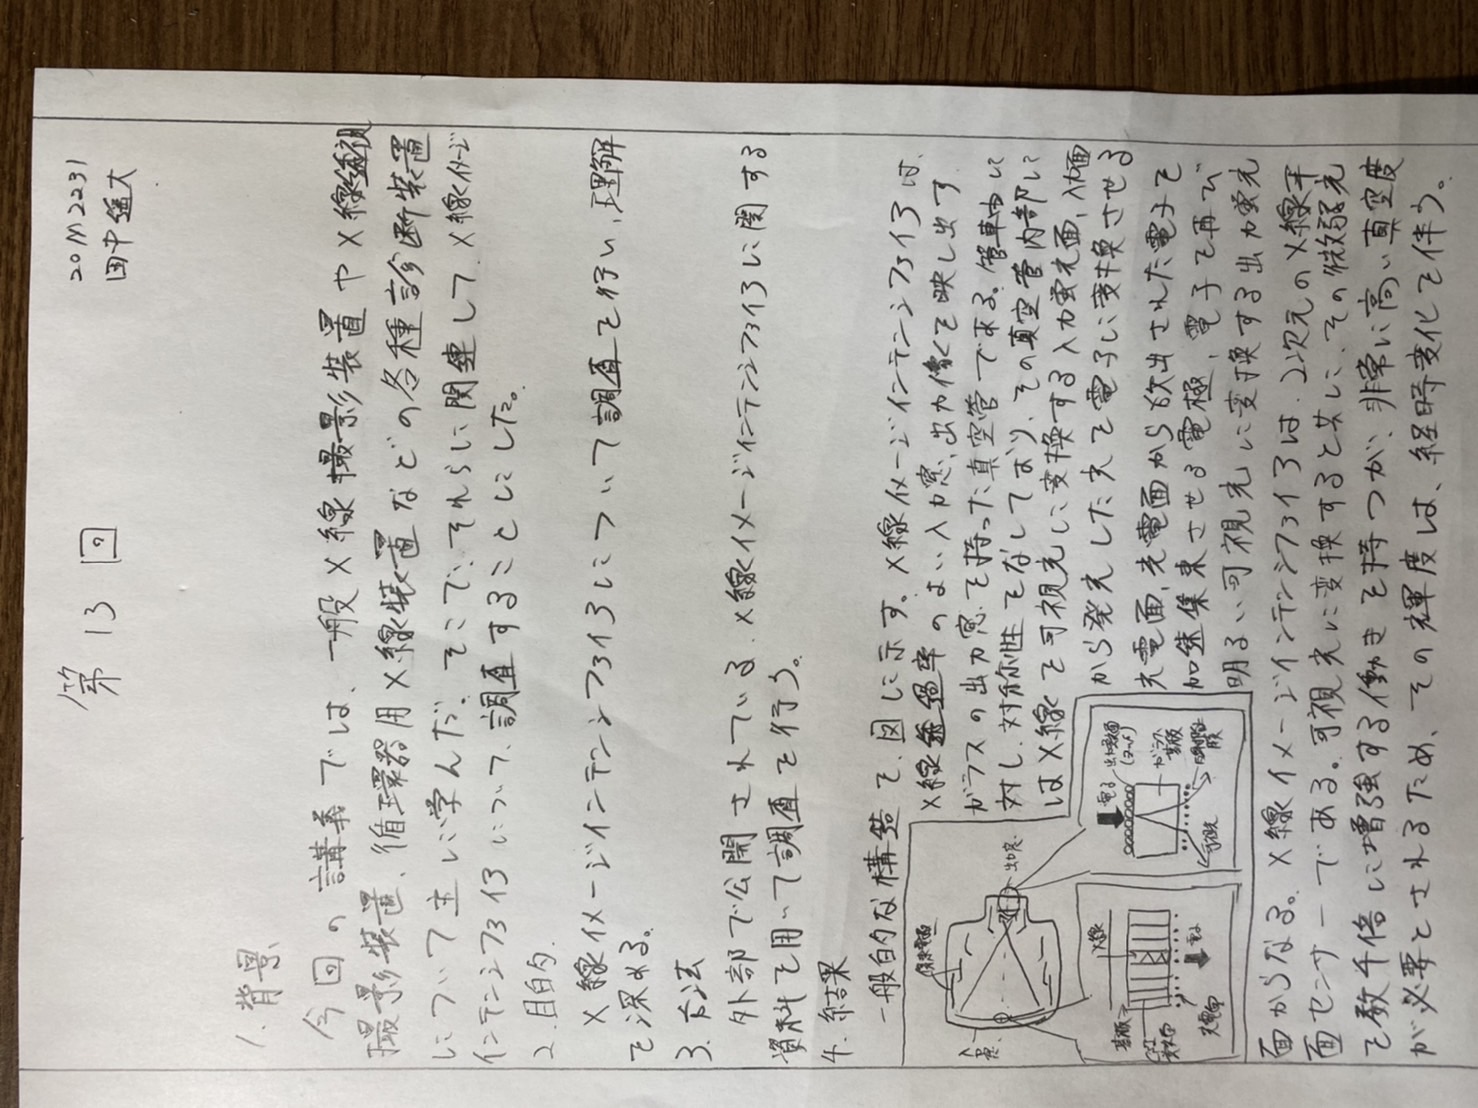 20M2231
田中遥大
第13回
1.背景
今回の講義では、一般X線撮影装置やX線透視
撮影装置、循環器用X線装置などの各種診断装置
について主に学んだ。そこで、それらに関連してX線イメージ
インテンシファイアについて、調査することにした。
2.目的
X線イメージインテンシファイアについて調査を行い、理解
を深める。
3.方法
外部で公開されている、X線イメージインテンシファイアに関する
資料を用いて調査を行う。
4.結果
一般的な構造を、図に示す。X線イメージインテンシファイアは、
X線透過率のよい入力窓、出力像を映し出す
ガラスの出力窓を持った真空管である。管軸に
対し、対称性をなしており、その真空管内部に
はX線を可視光に変換する入力蛍光面、入力面
から発光した光を電子に変換させる
光電面、光電面から放出された電子を
加速集束させる電極、電子を再び
明るい可視光に変換する出力蛍光
面からなる。X線イメージインテンシファイアは、2次元のX線平
面センサーである。可視光に変換すると共に、その微弱光
を数千倍に増強する働きを持つが、非常に高い真空度
が必要とされるため、その輝度は、経時変化を伴う。
集束電極
出力窓
入力窓
X線
基板
光電面
電子
電子
ガラス基板
可視光